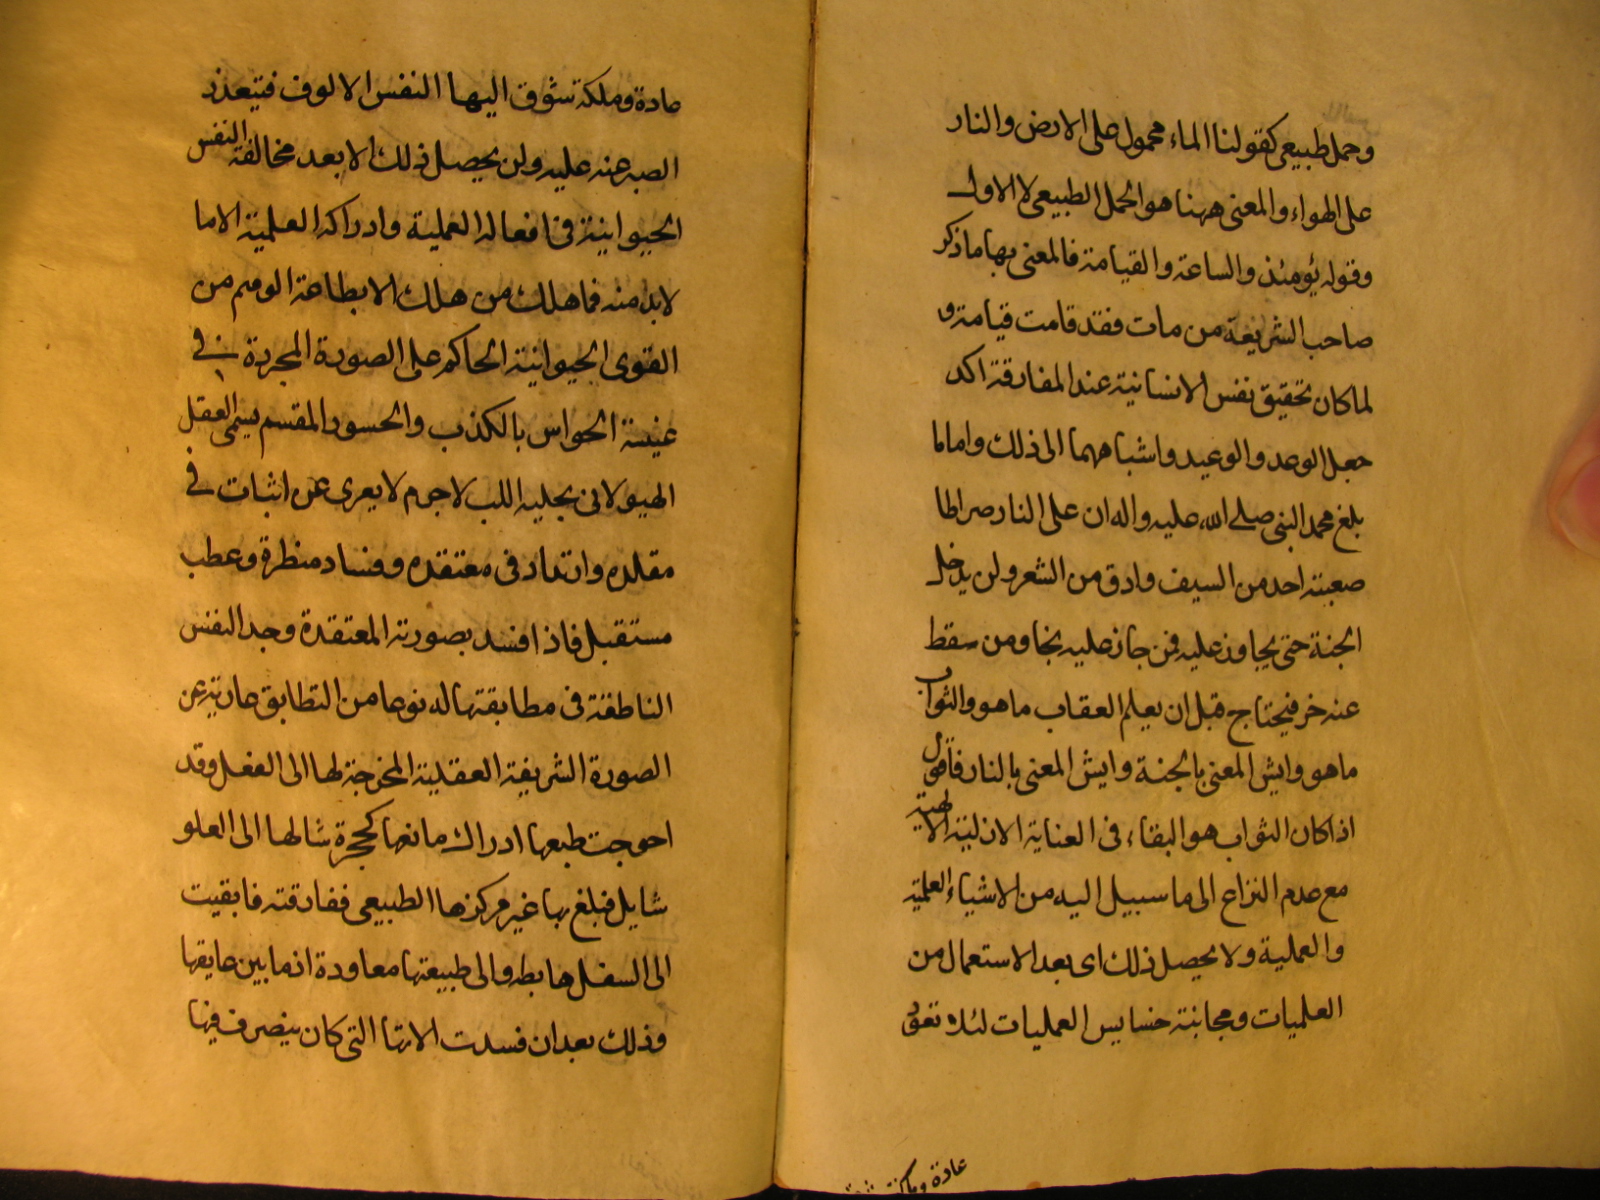 وحمل طبيعي كقولنا الماء محمول على الارض والنار
على الهواء والمعنى ههنا هو الحمل الطبيعي لا الاول
وقوله يؤمئذ والساعة والقيامة فالمعنى بها ما ذكر
صاحب الشريعة من مات فقد قامت قيامته و
لما كان تحقيق نفس الانسانية عند المفارقة اكد
جعل الوعد والوعيد واشباههما الى ذلك واما ما
بلغ محمد النبى صلى الله عليه واله ان على النار صراطا
صعبته احد من السيف وادق من الشعر ولن يدخل
الجنة حتى يجاوز عليه فمن جاز عليه نجا ومن سقط
عنه خر فيحتاج قبل ان يعلم العقاب ما هو والثواب
ما هو وايش المعنى بالجنة وايش المعنى بالنار فاقول
اذا كان الثواب هو البقاء فى العناية الازلية الالهية
مع عدم النزاع الى ما سبيل اليه من الاشياء العلمية
والعملية ولا يحصل ذلك اى بعد الاستعمال من
العلميات ومجانبة خسايس العمليات لئلا تعود
عادة وملكة
عادة وملكة تشوق اليها النفس الالوف فيتعذر
الصبر عنه عليه ولن يحصل ذلك الا بعد مخالفة النفس
الحيوانية فى افعاله العملية وادراكه العلمية الا ما
لابد منه فما هلك من هلك الا بطاعة الوهم من
القوى الحيوانية الحاكم على الصورة المجردة فى
غيبة الحواس بالكذب والحسود المقسم يسمى العقل
الهيولانى بجليه اللب لاجرم لا يعرى عن اثبات فى
مقلده وارتداد فى معتقده وفساد منظرة وعطب
مستقبل فاذا فسد بصورته المعتقدة وجد النفس
الناطقة فى مطابقتها له نوعا من التطابق عارية عن
الصورة الشريفة العقلية المخرجة لها الى الفعل وقد
احوجت طبعها ادراك مانعها كحجرة شالها الى العلو
شايل فبلغ بها غير مركزها الطبيعى ففارقته فابقيت
الى السفل هابطه والى طبيعتها معاودة اذ ما بين عايقها
وذلك بعد ان فسدت الالات التى كان ينصرف فيها